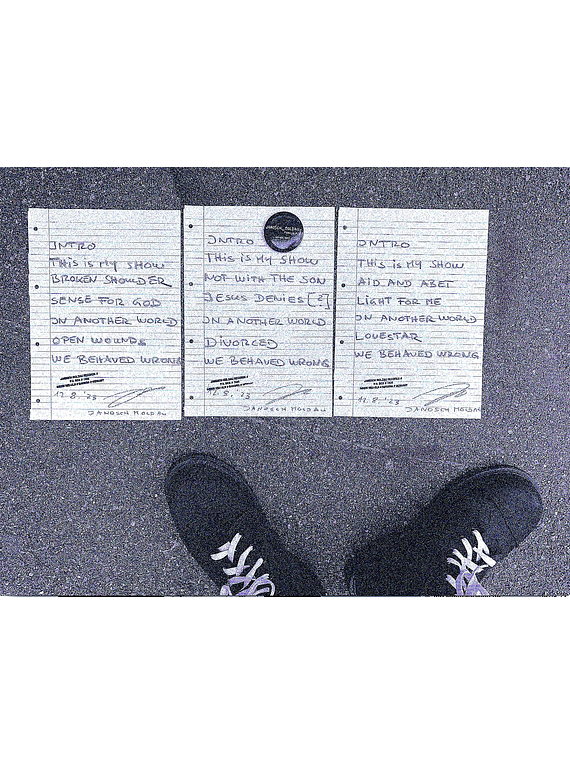 INTRO
THIS IS MY SHOW
BROKEN SHOULDER
SENSE FOR GOD
IN ANOTHER WORLD
OPEN WOUNDS
WE BEHAVED WRONG
12.8.'23
JANOSCH MOLDAU
JANOSCH MOLDAU
INTRO
THIS IS MY SHOW
NOT WITH THE SON
JESUS DENIES [2]
IN ANOTHER WORLD
DIVORCED
WE BEHAVED WRONG
12.8.'23
JANOSCH MOLDAU
INTRO
THIS IS MY SHOW
AID AND ABET
LIGHT FOR ME
IN ANOTHER WORLD
LOVESTAR
WE BEHAVED WRONG
12.8.'23
JANOSCH MOLDAU